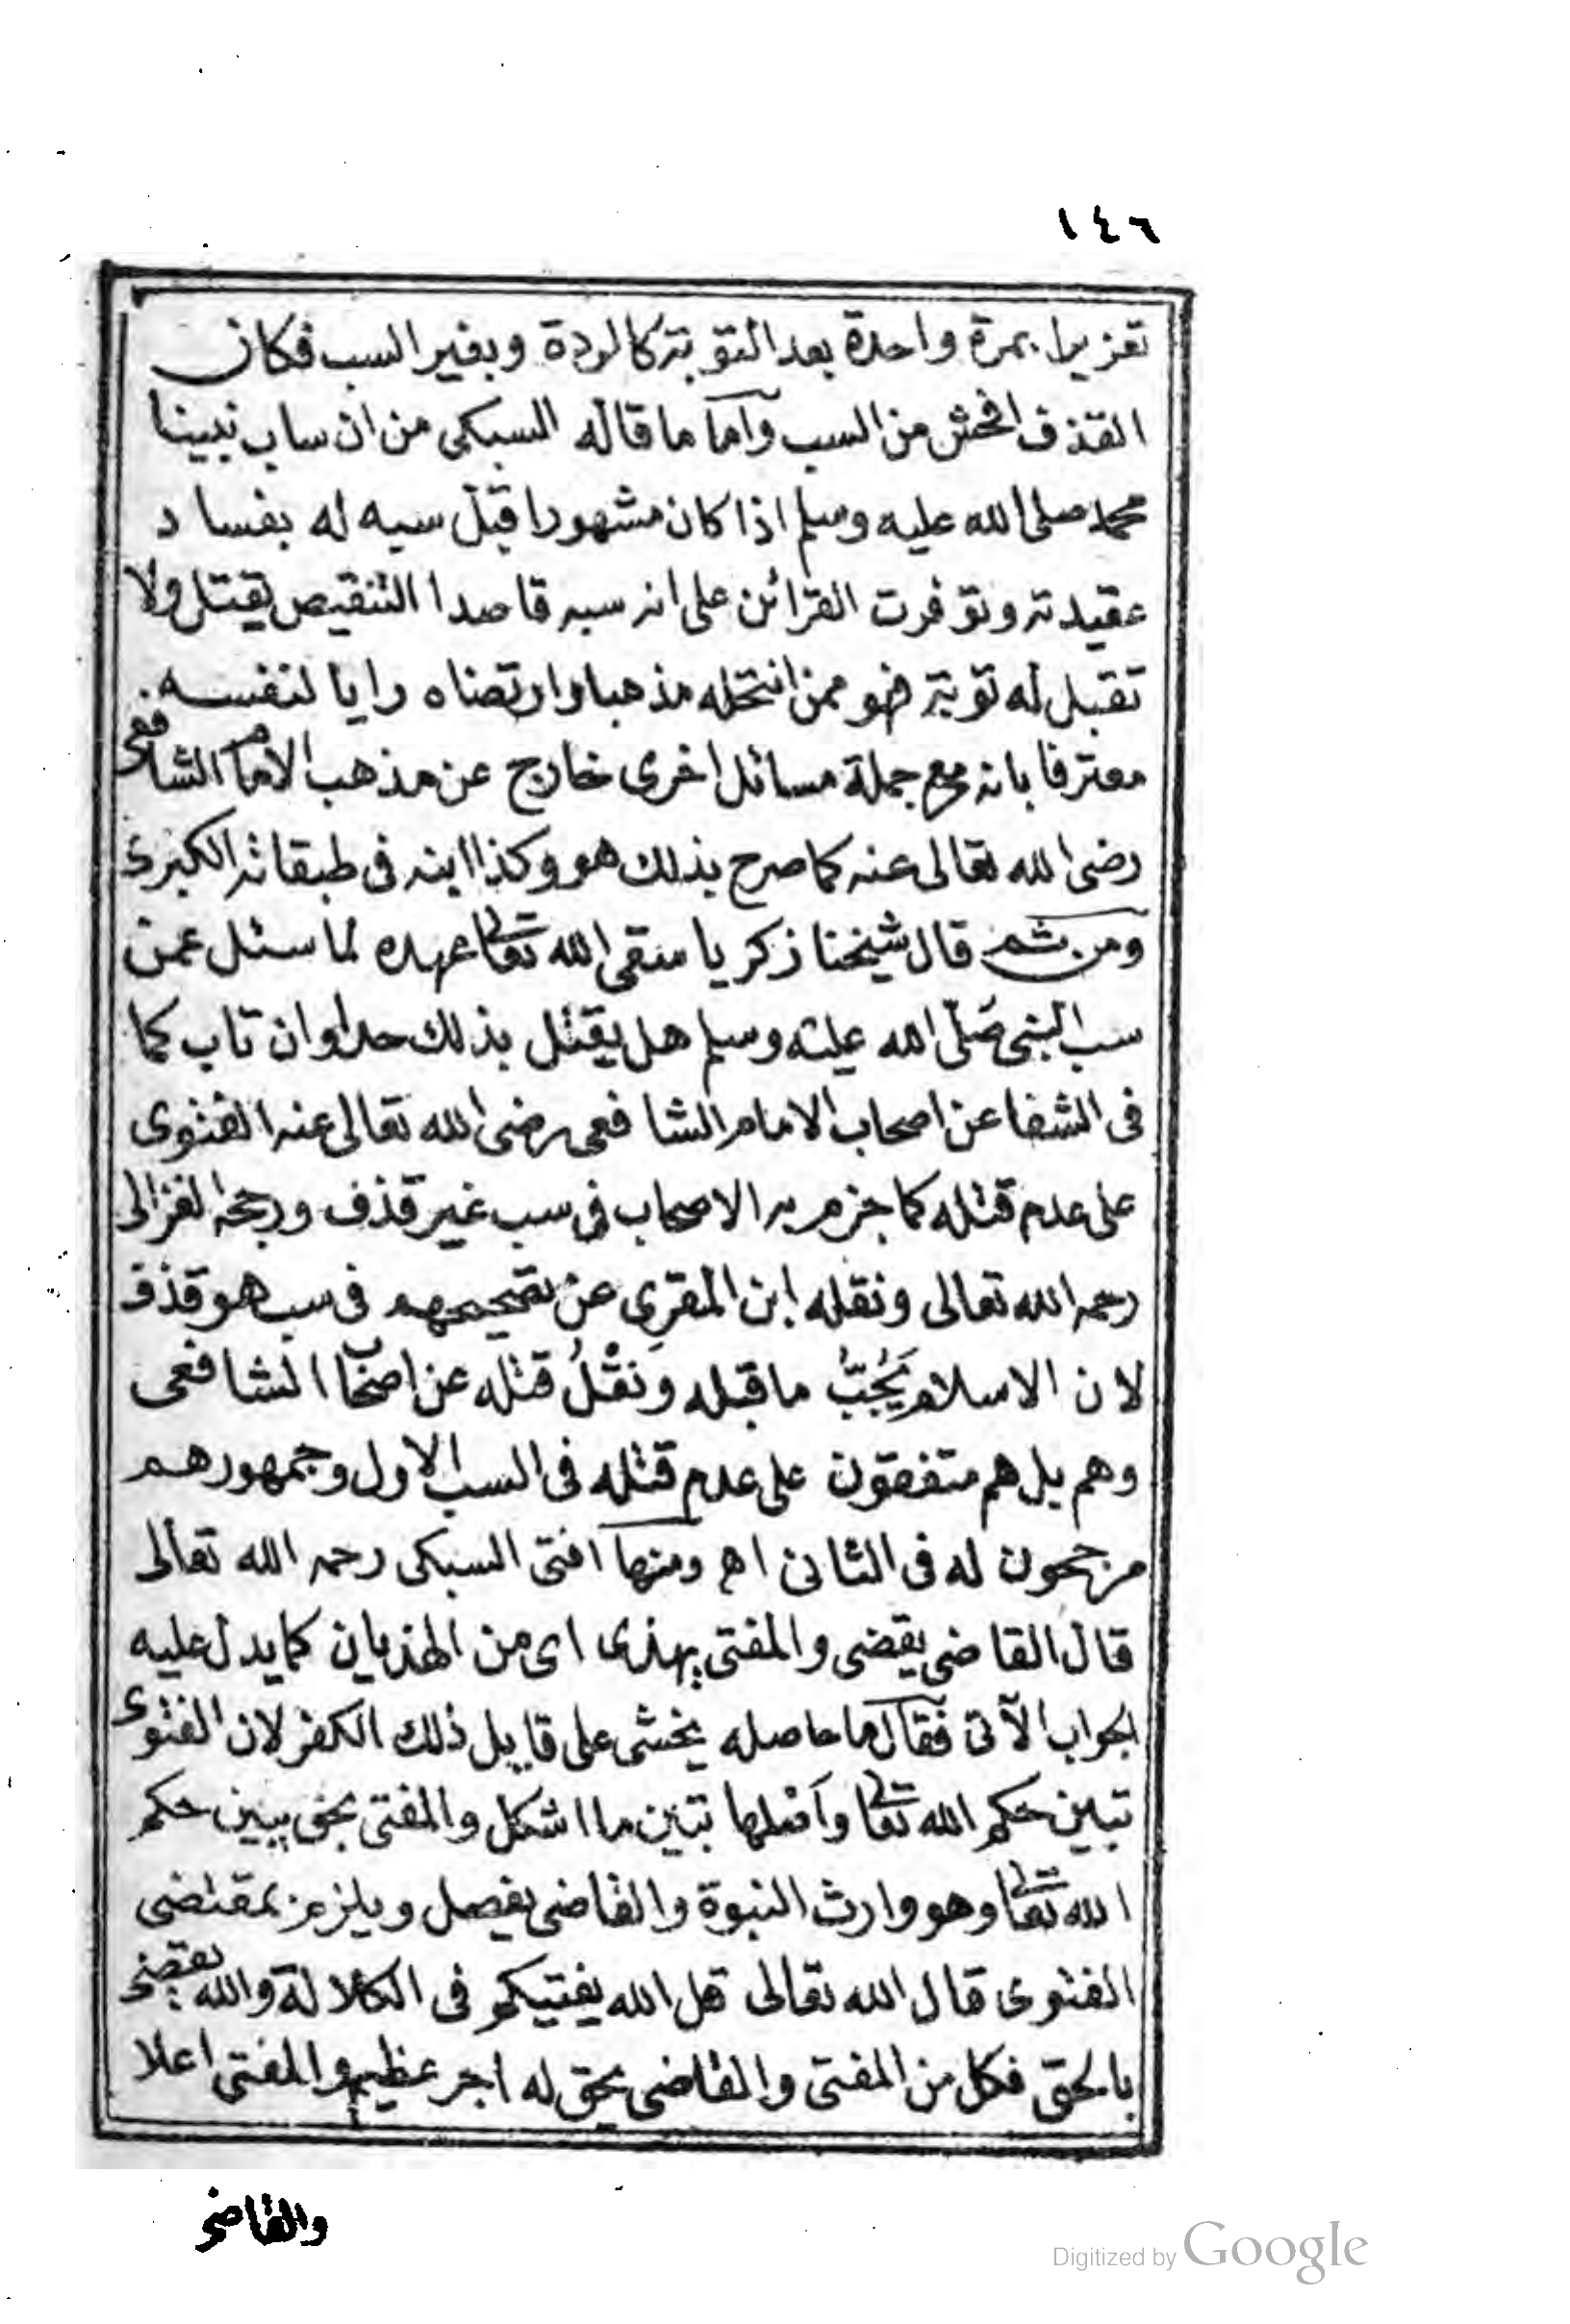 ١٤٦
تعزيرا بمرة واحدة بعد التوبة كالردة وبغير السب فكان
القذف افحش من السب وآما ما قاله السبكى من ان ساب نبينا
محمد صلى الله عليه وسلم اذا كان مشهورا قبل سبه له بفساد
عقيدته وتوفرت القرائن على انه سبه قاصدا التنقيص يقتل ولا
تقبل له توبة فهو ممن انتحله مذهبا وارتضاه رايا لنفسه
معترفا بانه مع جملة مسائل اخرى خارج عن مذهب الامام الشافعى
رضى الله تعالى عنه كما صرح بذلك هو وكذا ابنه فى طبقاته الكبرى
ومن ثم قال شيخنا زكريا سقى الله تعا عهده لما سئل عمن
سب النبى صَلّى الله عليه وسلم هل يقتل بذلك حدا وان تاب كما
فى الشفا عن اصحاب الامام الشافعى رضى الله تعالى عنه الفتوى
على عدم قتله كما جزم به الاصحاب فى سب غير قذف ورجحه الغزالى
رحمه الله تعالى ونقله ابن المقرِى عن تصحيحهم فى سب هو قذف
لان الاسلام يَجُبُّ ما قبله ونقْلُ قتله عن اصحاب الشافعى
وهم بل هم متفقون على عدم قتله فى السب الاول وجمهورهم
مرجحون له فى الثانى اه ومنها افتى السبكى رحمه الله تعالى
قال القاضى يقضى والمفتى يهذى اى من الهذيان كما يدل عليه
الجواب الآتى فقال ما حاصله يخشى على قايل ذلك الكفر لان الفتوى
تبيين حكم الله تعا وآصلها تبيين ما اشكل والمفتى بحق يبين حكم
الله تعا وهو وارث النبوة والقاضى يفصل ويلزم بمقتضى
الفتوى قال الله تعالى قل الله يفتيكم فى الكلالة والله يقضى
بالحق فكل من المفتى والقاضى بحق له اجر عظيم والمفتى اعلا
والقاضى
Digitized by Google